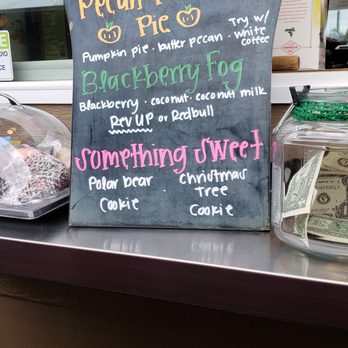 Pecan
Pie
Pumpkin pie · butter pecan ·
Try w/
white
coffee
Blackberry Fog
Blackberry · coconut · coconut milk
Rev Up or Redbull
Something Sweet
Polar bear
Cookie
·
Christmas
Tree
Cookie